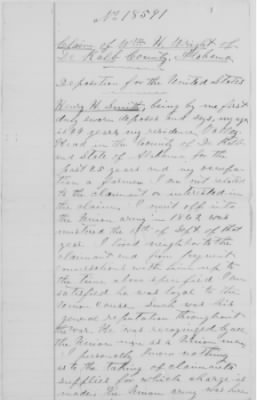 No 18591
Claim of Wm H. Wright of
De Kalb County, Alabama
Deposition for the United States
Henry H. Smith, being by me first
duly sworn deposes and says, my age
is 44 years, my residence Valley
Head in the County of De Kalb
and State of Alabama for the
past 25 years and my occupa-
tion a farmer. I am not related
to the claimant or interested in
the claim. I went off into
the Union army in 1862, was
mustered the of Sept of that
year. I lived neighbor to the
claimant and from frequent
conversations with him up to
the time above specified I am
satisfied he was loyal to the
Union cause. Such was his
general reputation throughout
the war. He was recognized by all
the Union men as a Union man.
I personally know nothing
as to the taking of claimants
supplies for which charge is
made. The Union army was here